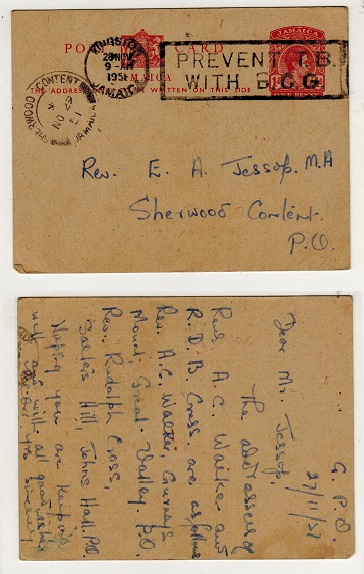 POST CARD
JAMAICA
THE ADDRESS TO BE WRITTEN ON THIS SIDE
JAMAICA
ONE PENNY
KINGSTON
28 NOV
9-AM
1951
JAMAICA
PREVENT T.B.
WITH B.C.G.
SHERWOOD CONTENT
JAMAICA
Rev. E. A. Jessop. M.A
Sherwood Content.
P.O.
G. P. O.
27/11/51
Dear Mr. Jessop,
The addresses of
Revs. A. C. Walker and
R. D. B. Cross, are as follows
Rev. A. C. Walker, Gurneys
Mount, Great Valley. P.O.
Rev. Rudolph Cross,
Salters Hill, Johns Hall. P.O.
Hoping you are keeping
well and with all good wishes
yrs sincerely